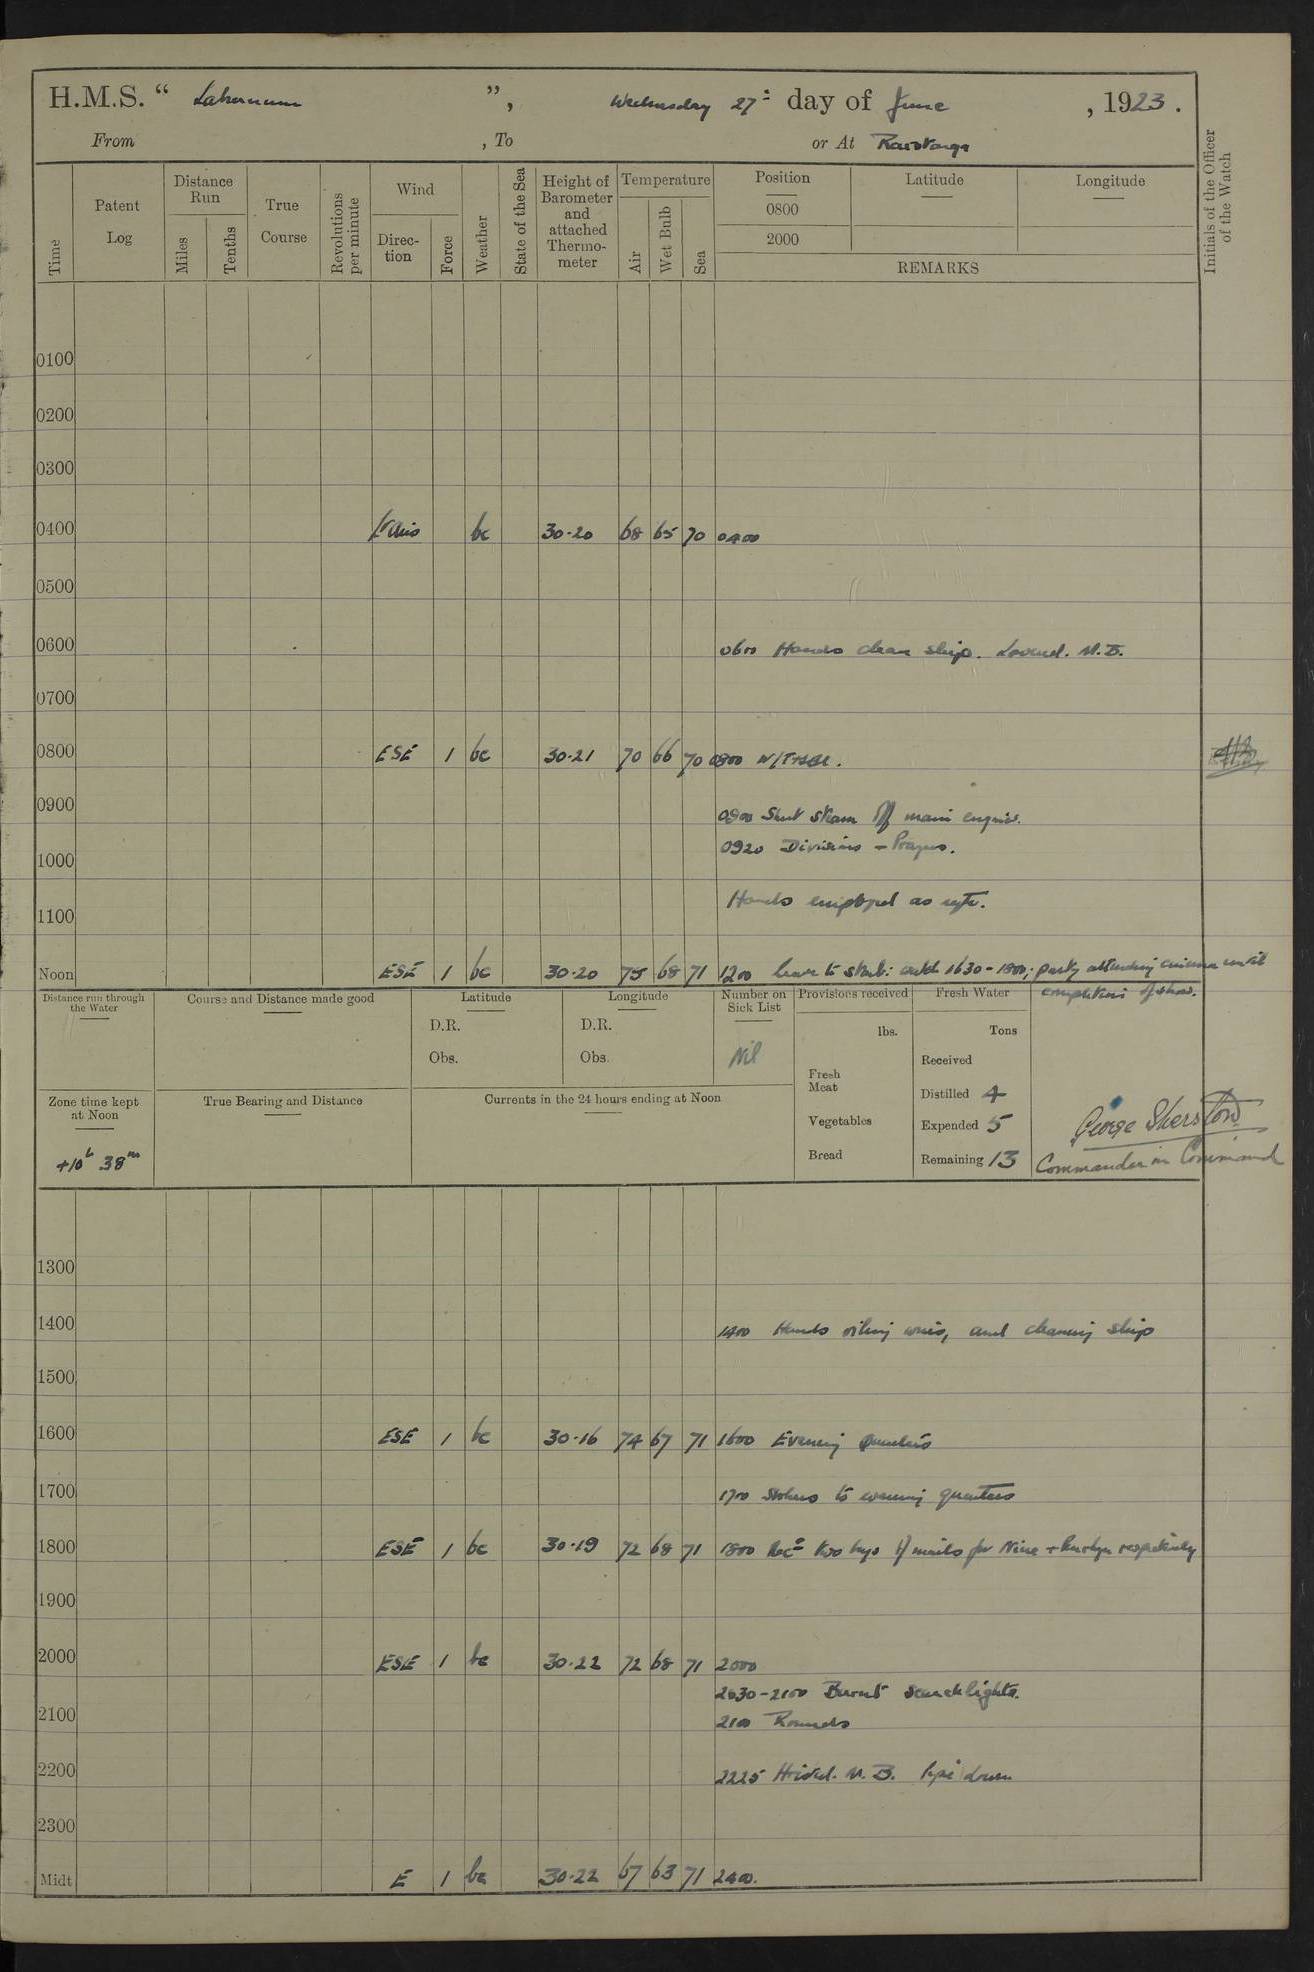 H.M.S. “ Laburnum ”, Wednesday 27th day of June, 1923.
From , To or At Rarotonga
Time
Patent Log
Distance Run
Miles
Tenths
True Course
Revolutions per minute
Wind
Direc-tion
Force
Weather
State of the Sea
Height of Barometer and attached Thermo-meter
Temperature
Air
Wet Bulb
Sea
Position
0800
2000
Latitude
Longitude
REMARKS
Initials of the Officer of the Watch
0100
0200
0300
0400 bc 30·20 68 65 70 0400
0500
0600 0600 Hands clean ship. Lowered M.B.
0700
0800 ESE 1 bc 30·21 70 66 70 0800
0900 0900 Shut steam off main engines.
0920 Divisions – Prayers.
1000
Hands employed as reqte.
1100
Noon ESE 1 bc 30·20 75 68 71 1200 leave to starbd: watch 1630-1800; party attending cinema until
completion of show.
Distance run through the Water
Course and Distance made good
Latitude
D.R.
Obs.
Longitude
D.R.
Obs.
Number on Sick List
Nil
Provisions received
lbs.
Fresh Meat
Vegetables
Bread
Fresh Water
Tons
Received
Distilled 4
Expended 5
Remaining 13
George Sherston
Commander in Command
Zone time kept at Noon
+10h 38m
True Bearing and Distance
Currents in the 24 hours ending at Noon
1300
1400 1400 Hands oiling wires, and cleaning ship
1500
1600 ESE 1 bc 30·16 74 67 71 1600 Evening Quarters
1700 1700 Stokers to evening quarters
1800 ESE 1 bc 30·19 72 68 71 1800 Recd two bags of mails for Niue + respectively
1900
2000 ESE 1 bc 30·22 72 68 71 2000
2030-2100 Burnt searchlights.
2100 2100 Rounds
2200 2225 Hoisted M.B. Pipe down
2300
Midt E 1 bc 30·22 67 63 71 2400.